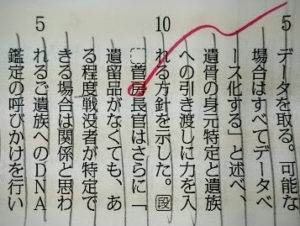 5 データを取る。可能な
場合はすべてデータベ
ース化する」と述べ、
遺骨の身元特定と遺族
への引き渡しに力を入
10 れる方針を示した。段
菅房長官はさらに「
遺留品がなくても、あ
る程度戦没者が特定で
きる場合は関係と思わ
5 れるご遺族へのDNA
鑑定の呼びかけを行い